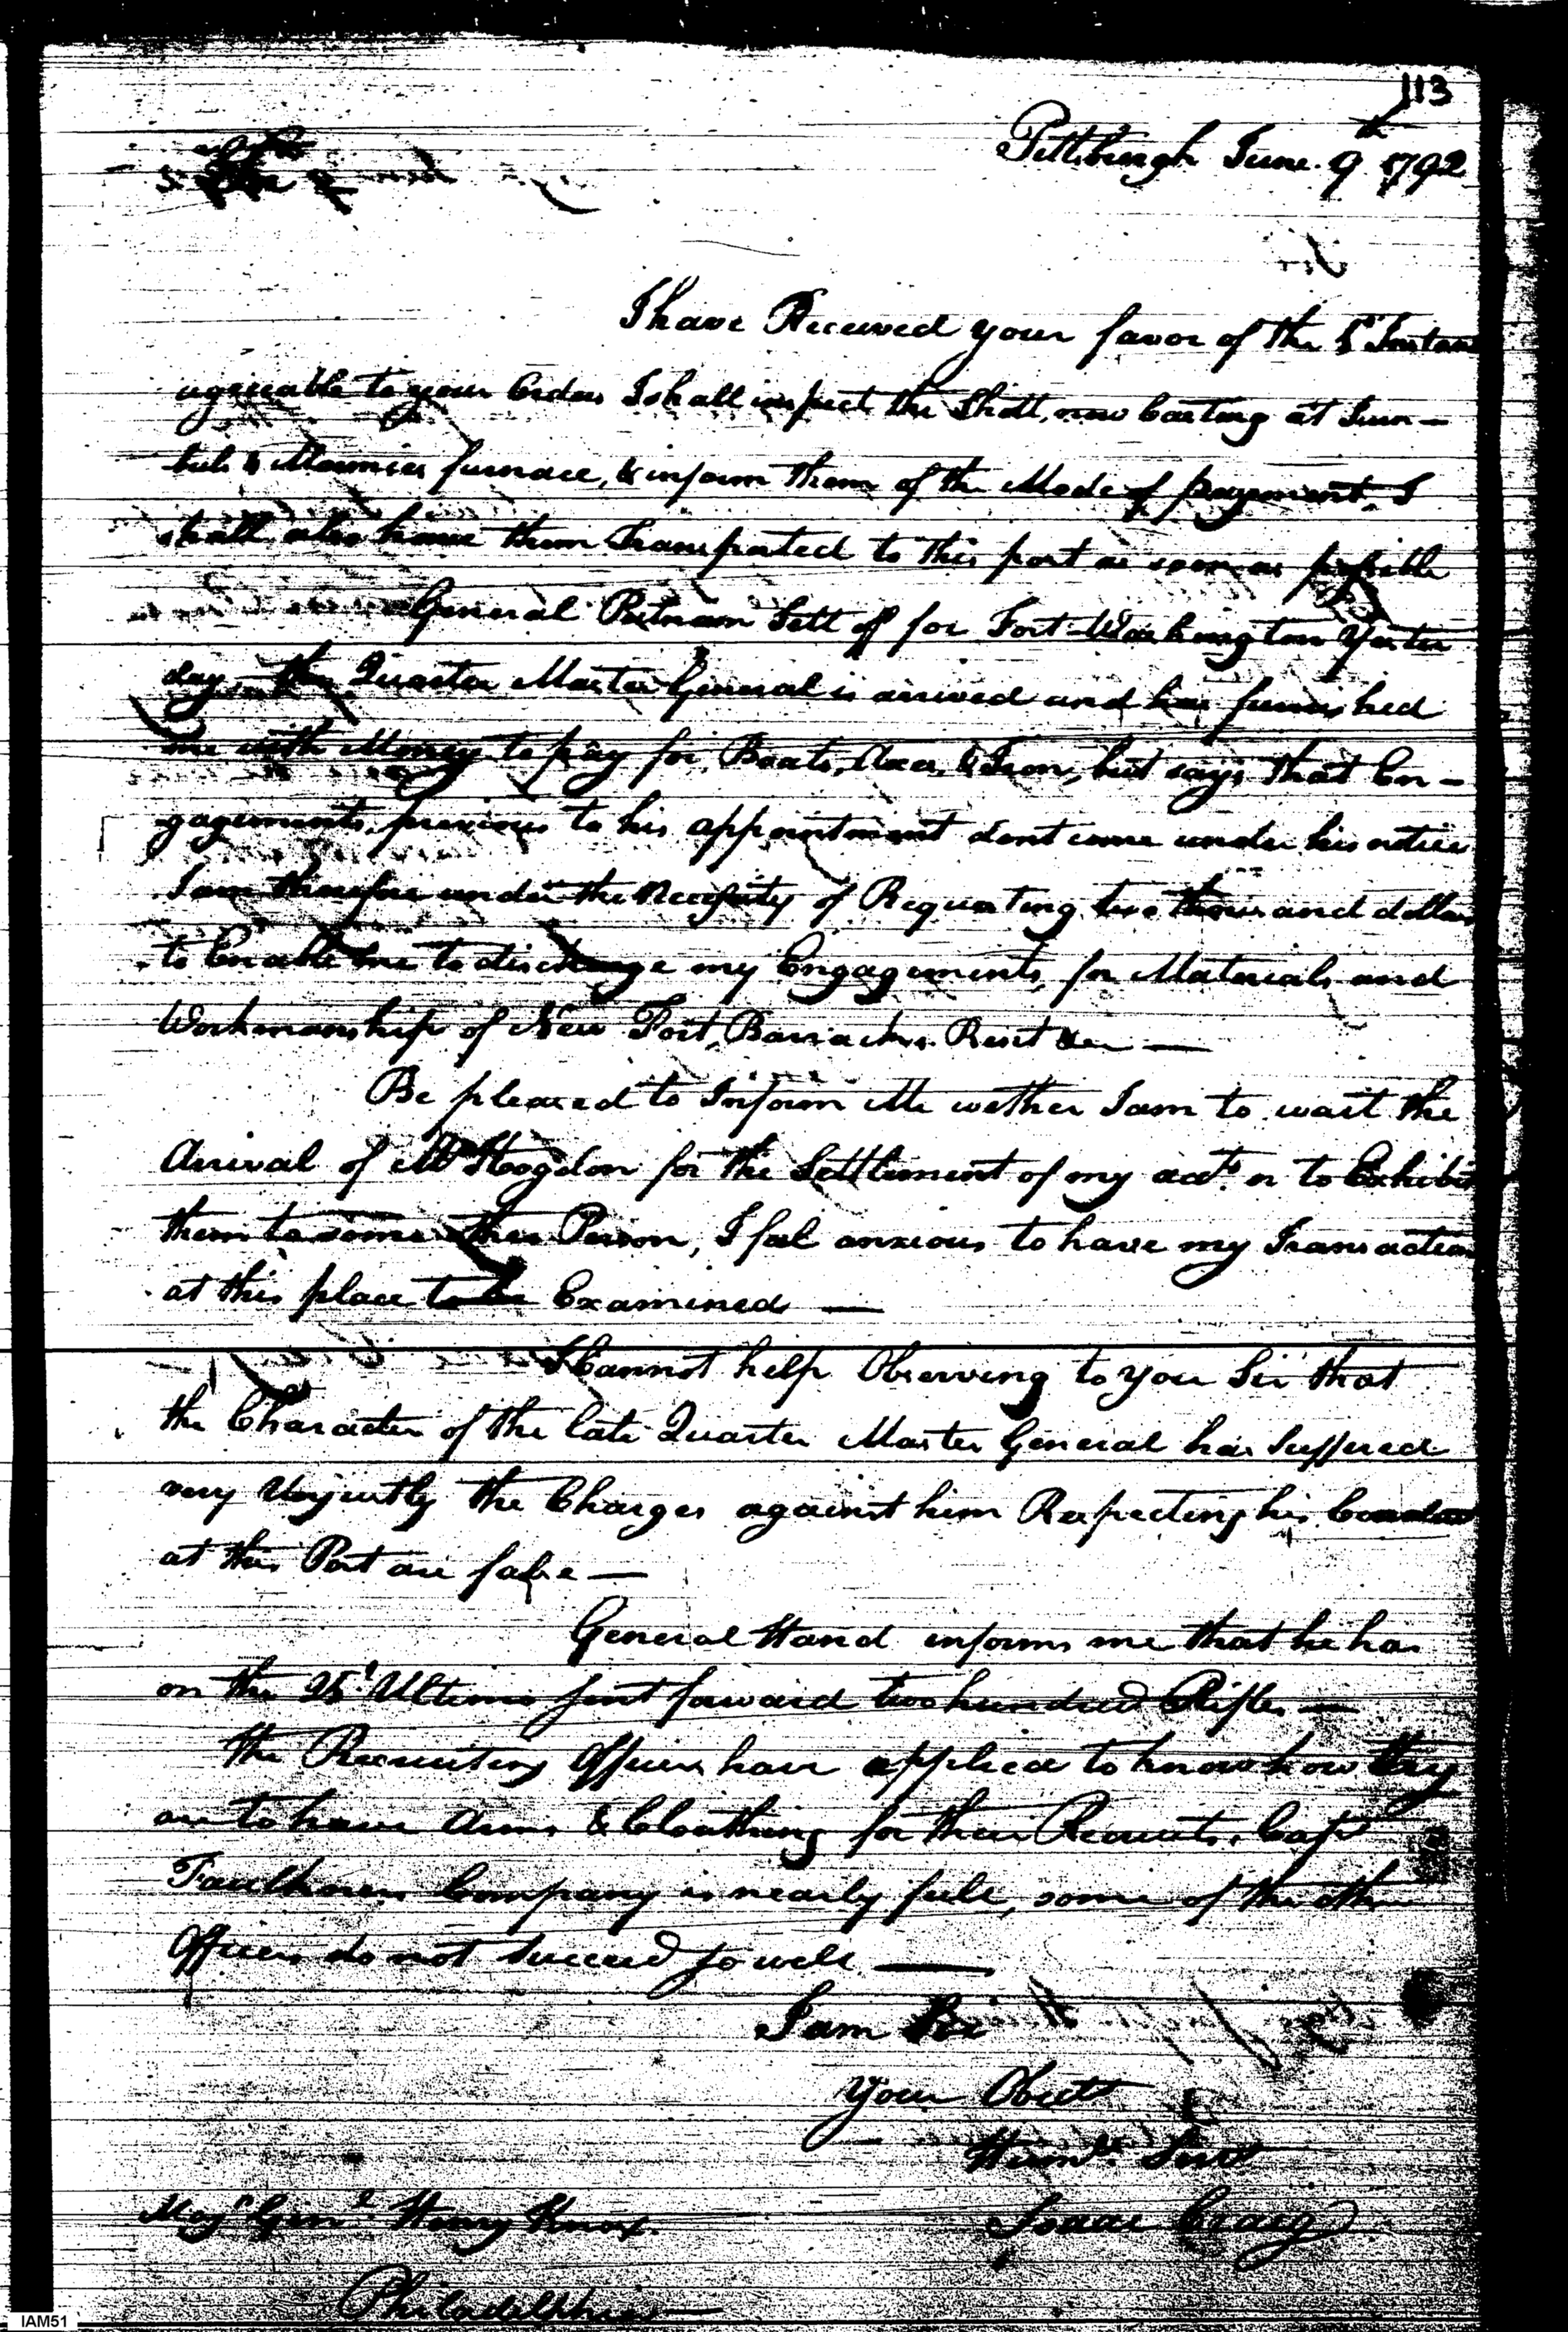 113
Pittsburgh June 9th 1792
I have Received your favor of the Instan
agreeable to your Orders I shall inspect the Shott, now Casting at Turn-
buls & Marmies furnace, & inform them of the Mode of payment, I
shall also have them Transported to this port as soon as possible
General Putnam Sett off for Fort Washington Yester
day, the Quarter Master General is arived and has furnished
me with Money to pay for, Boats, Axes, & Iron, but says that En-
gagements, previous to his appointment dont come under his notice
I am therefore under the Necessity of Requesting two thousand dollars
to Enable me to discharge my Engagements, for Materials and
Workmanship of New Fort, Barracks
Be pleased to Inform Me wether I am to wait the
Arival of Mr Hogdon for the Settlement of my acts. or to Exhibit
them to some other Person, I feel anxious to have my Transaction
at this place to be Examined —
I Cannot help Observing to you Sir that
the Character of the late Quarter Master General has Suffered
very Unjustly the Charges against him Respecting his Conduct
at this Post are false —
General Hand informs me that he has
on the 25t. Ultimo sent forward two hundred Rifles —
the Recruiting Officers have applied to know how they
are to have Arms & Cloathing for their Recruits, Capt
Faulkners Company is nearly full, some of the other
Officers do not Succeed so well —
I am Sir
Your Obedt
Humbl. Servt
Isaac Craig
Majr Genl. Henry Knox
Philadelphia
IAM51